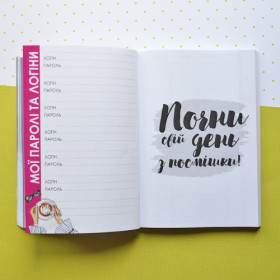 МОЇ ПАРОЛІ ТА ЛОГІНИ
ЛОГІН
ПАРОЛЬ
ЛОГІН
ПАРОЛЬ
ЛОГІН
ПАРОЛЬ
ЛОГІН
ПАРОЛЬ
ЛОГІН
ПАРОЛЬ
ЛОГІН
ПАРОЛЬ
Почни
свій день
з посмішки!